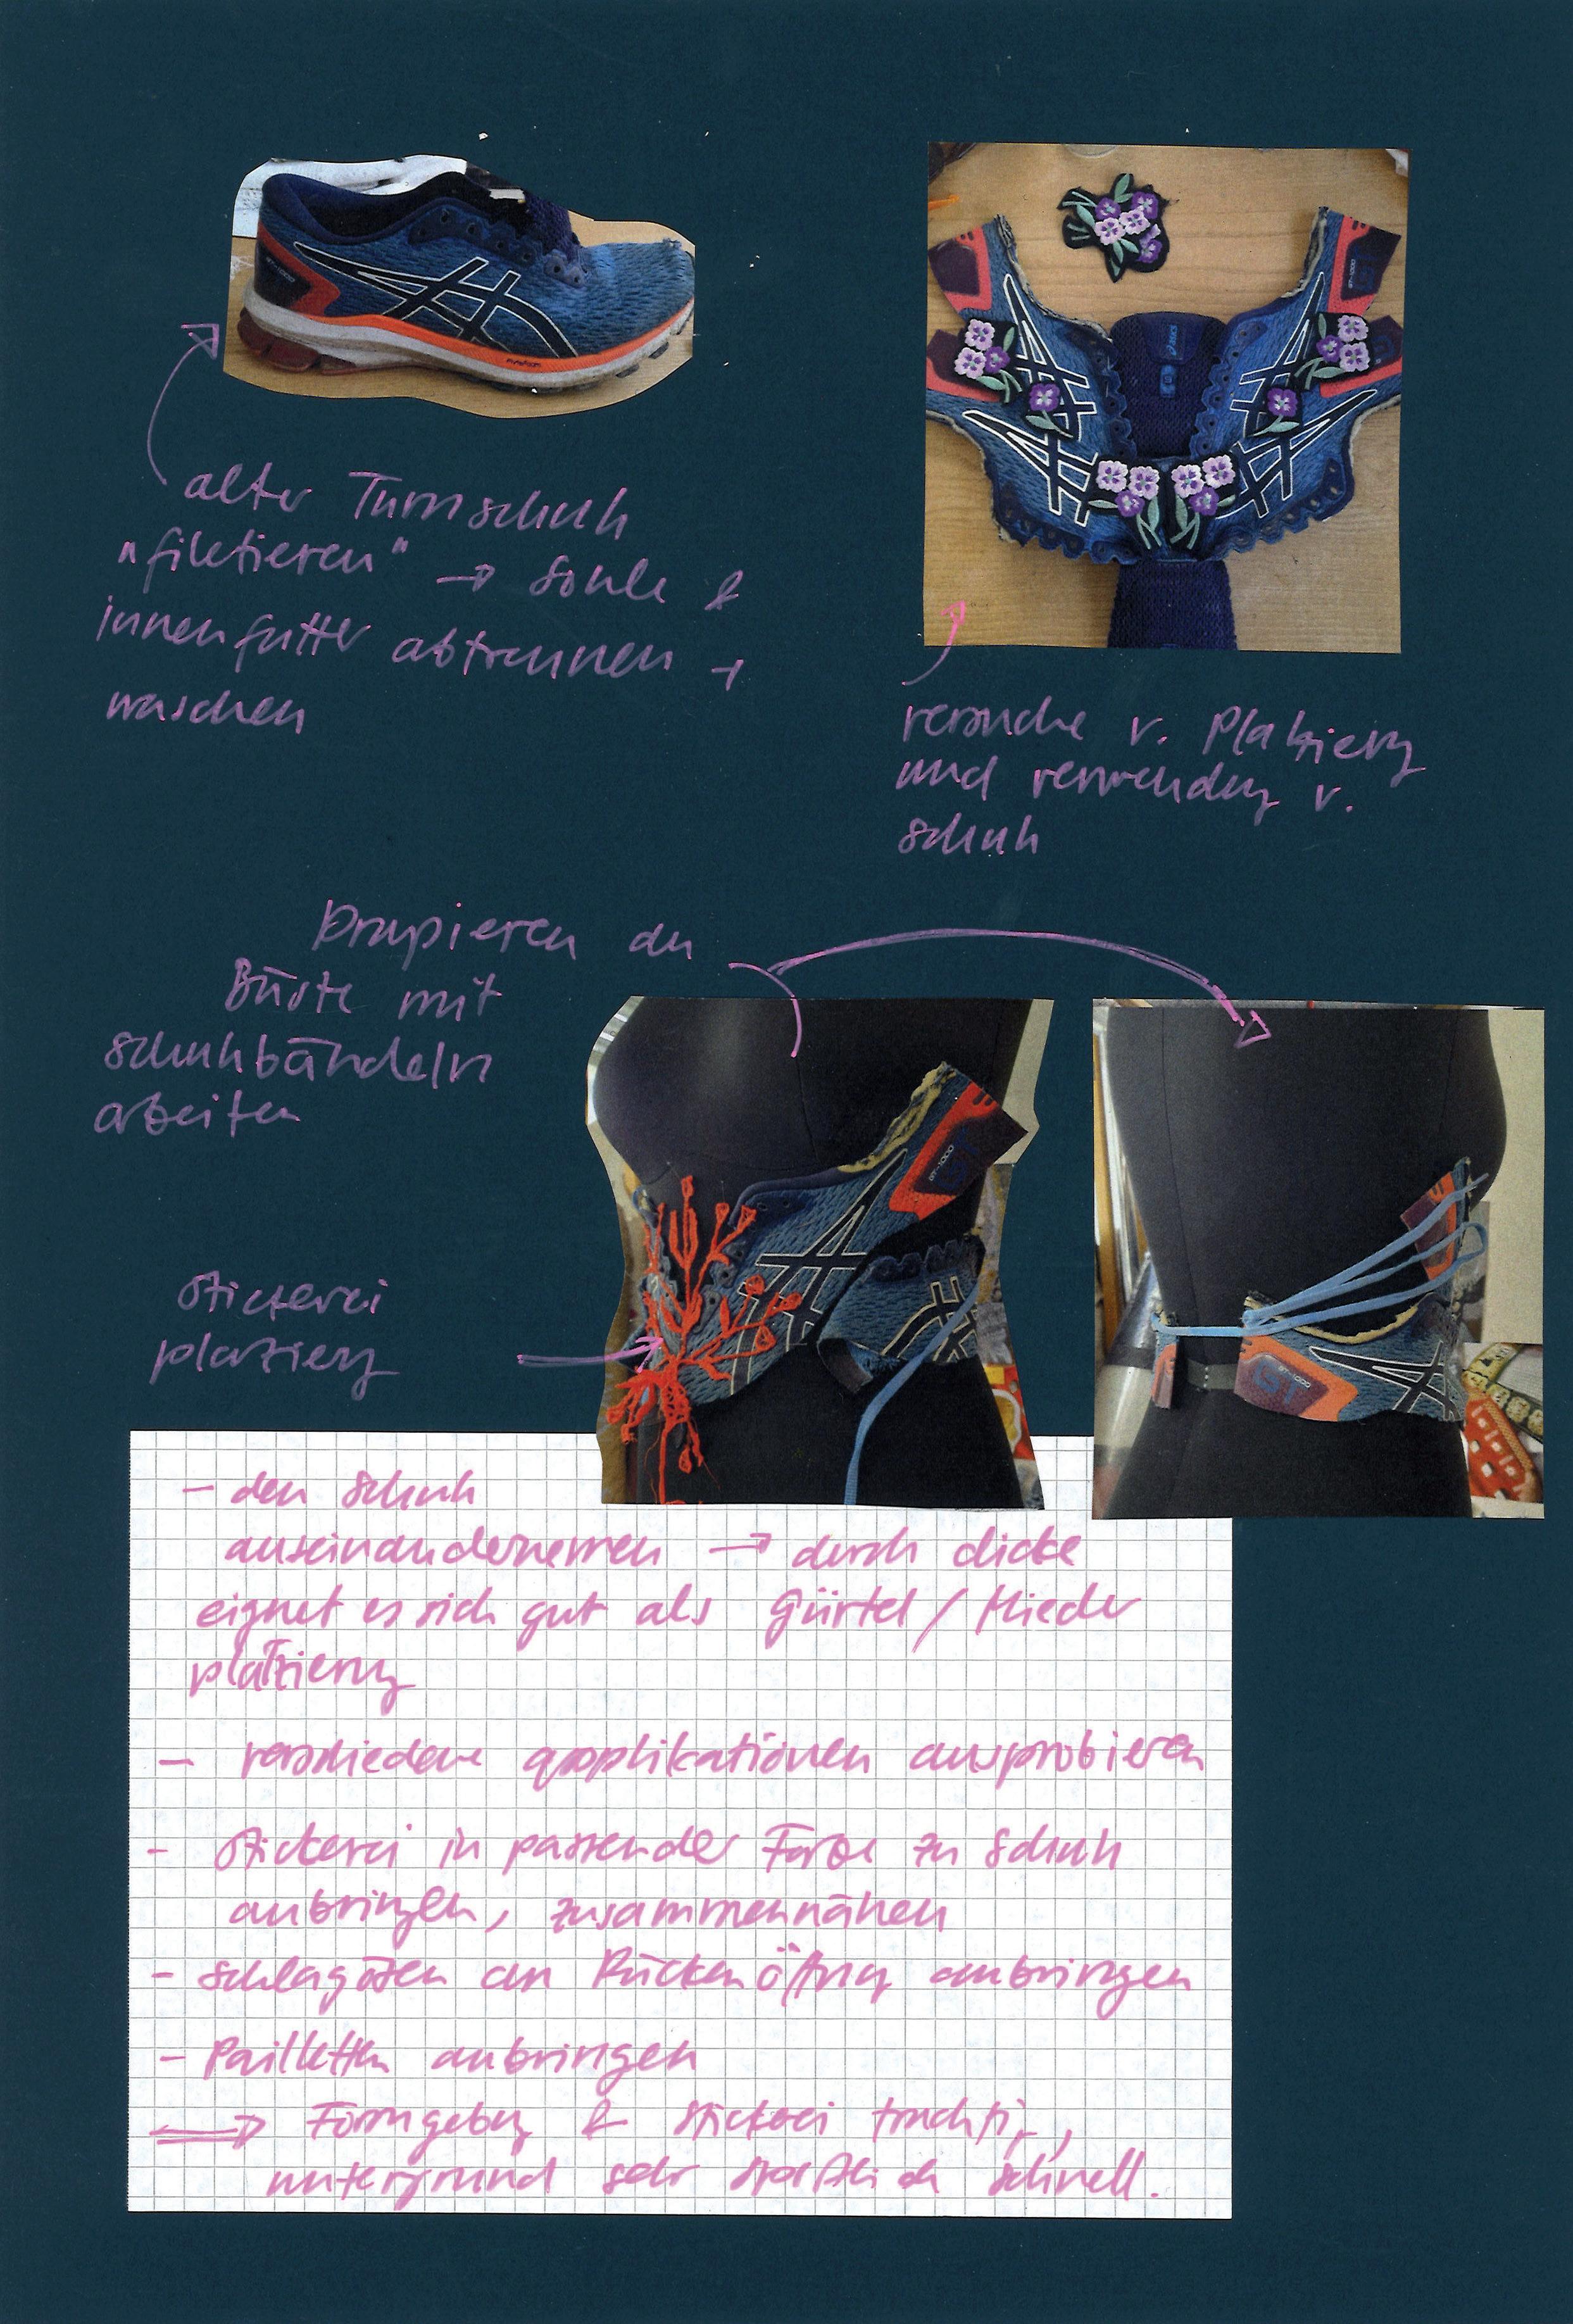 alter Turnschuh
"filetieren" → Sohle &
innenfutter abtrennen +
waschen
versuche v. Platzierung
und verwendung v.
schuh
Drapieren an
Büste mit
schuhbändeln
arbeiten
stickerei
platzierung
- den Schuh
auseinandernemen → durch dicke
eignet es sich gut als Gürtel / Mieder
platzierung
- verschiedene applikationen ausprobieren
- stickerei in passender Farbe zu Schuh
anbringen, zusammennähen
- schlagösen an Rückenöffnung anbringen
- Pailletten anbringen
⇒ Formgebung & stickerei trachtig,
untergrund sehr sportlich schnell.
GT-1000
asics
GT-1000
GT-1000
GT
GT-1000